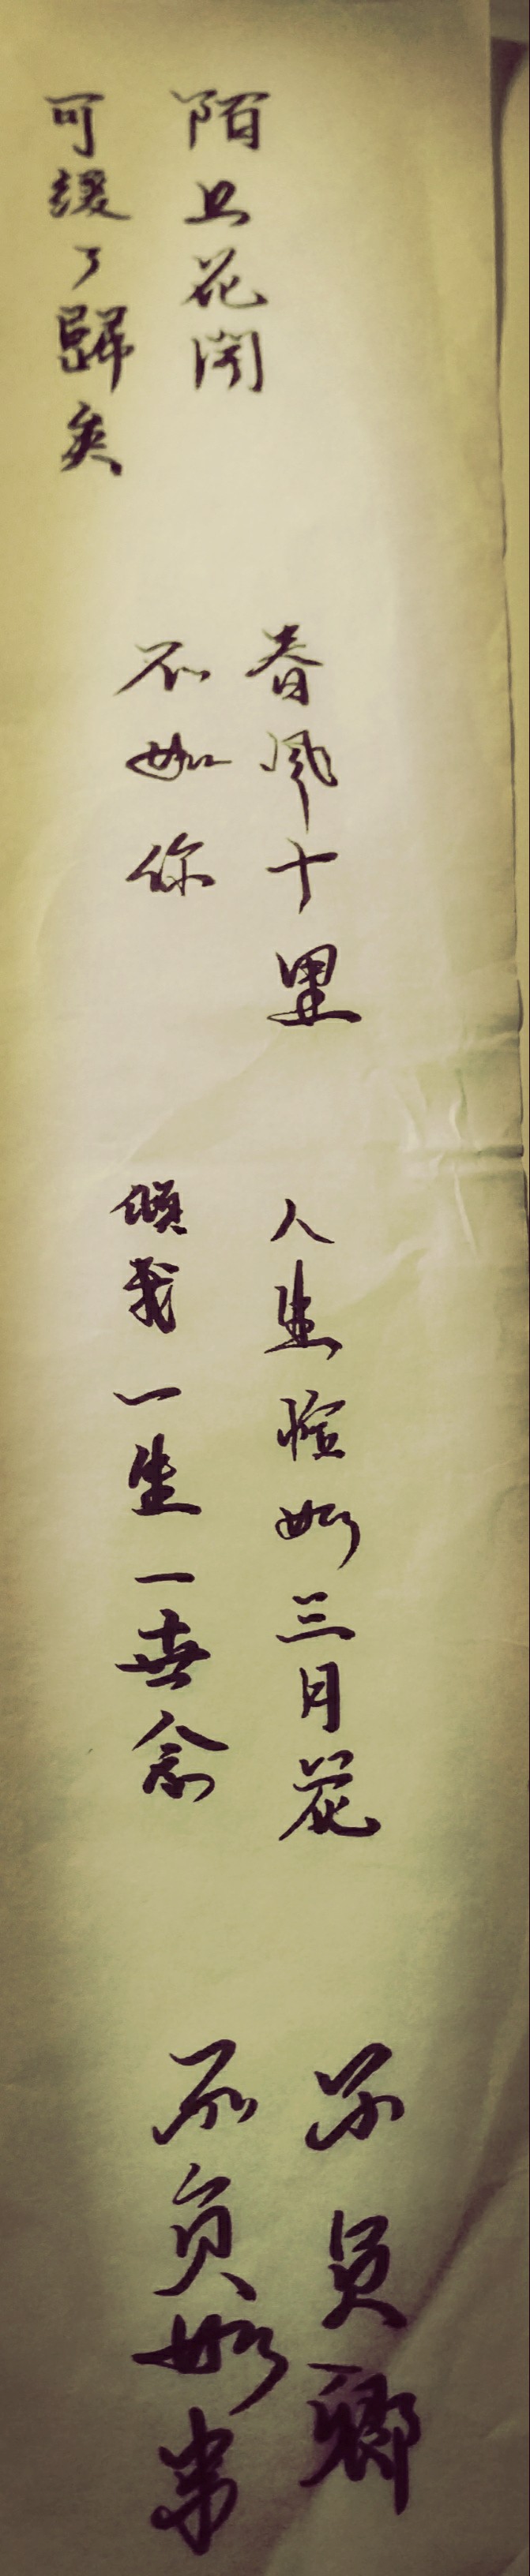 陌上花開
可緩了歸矣
春風十里
不如你
人生恰如三月花
傾我一生一世念
不負卿
不負如来